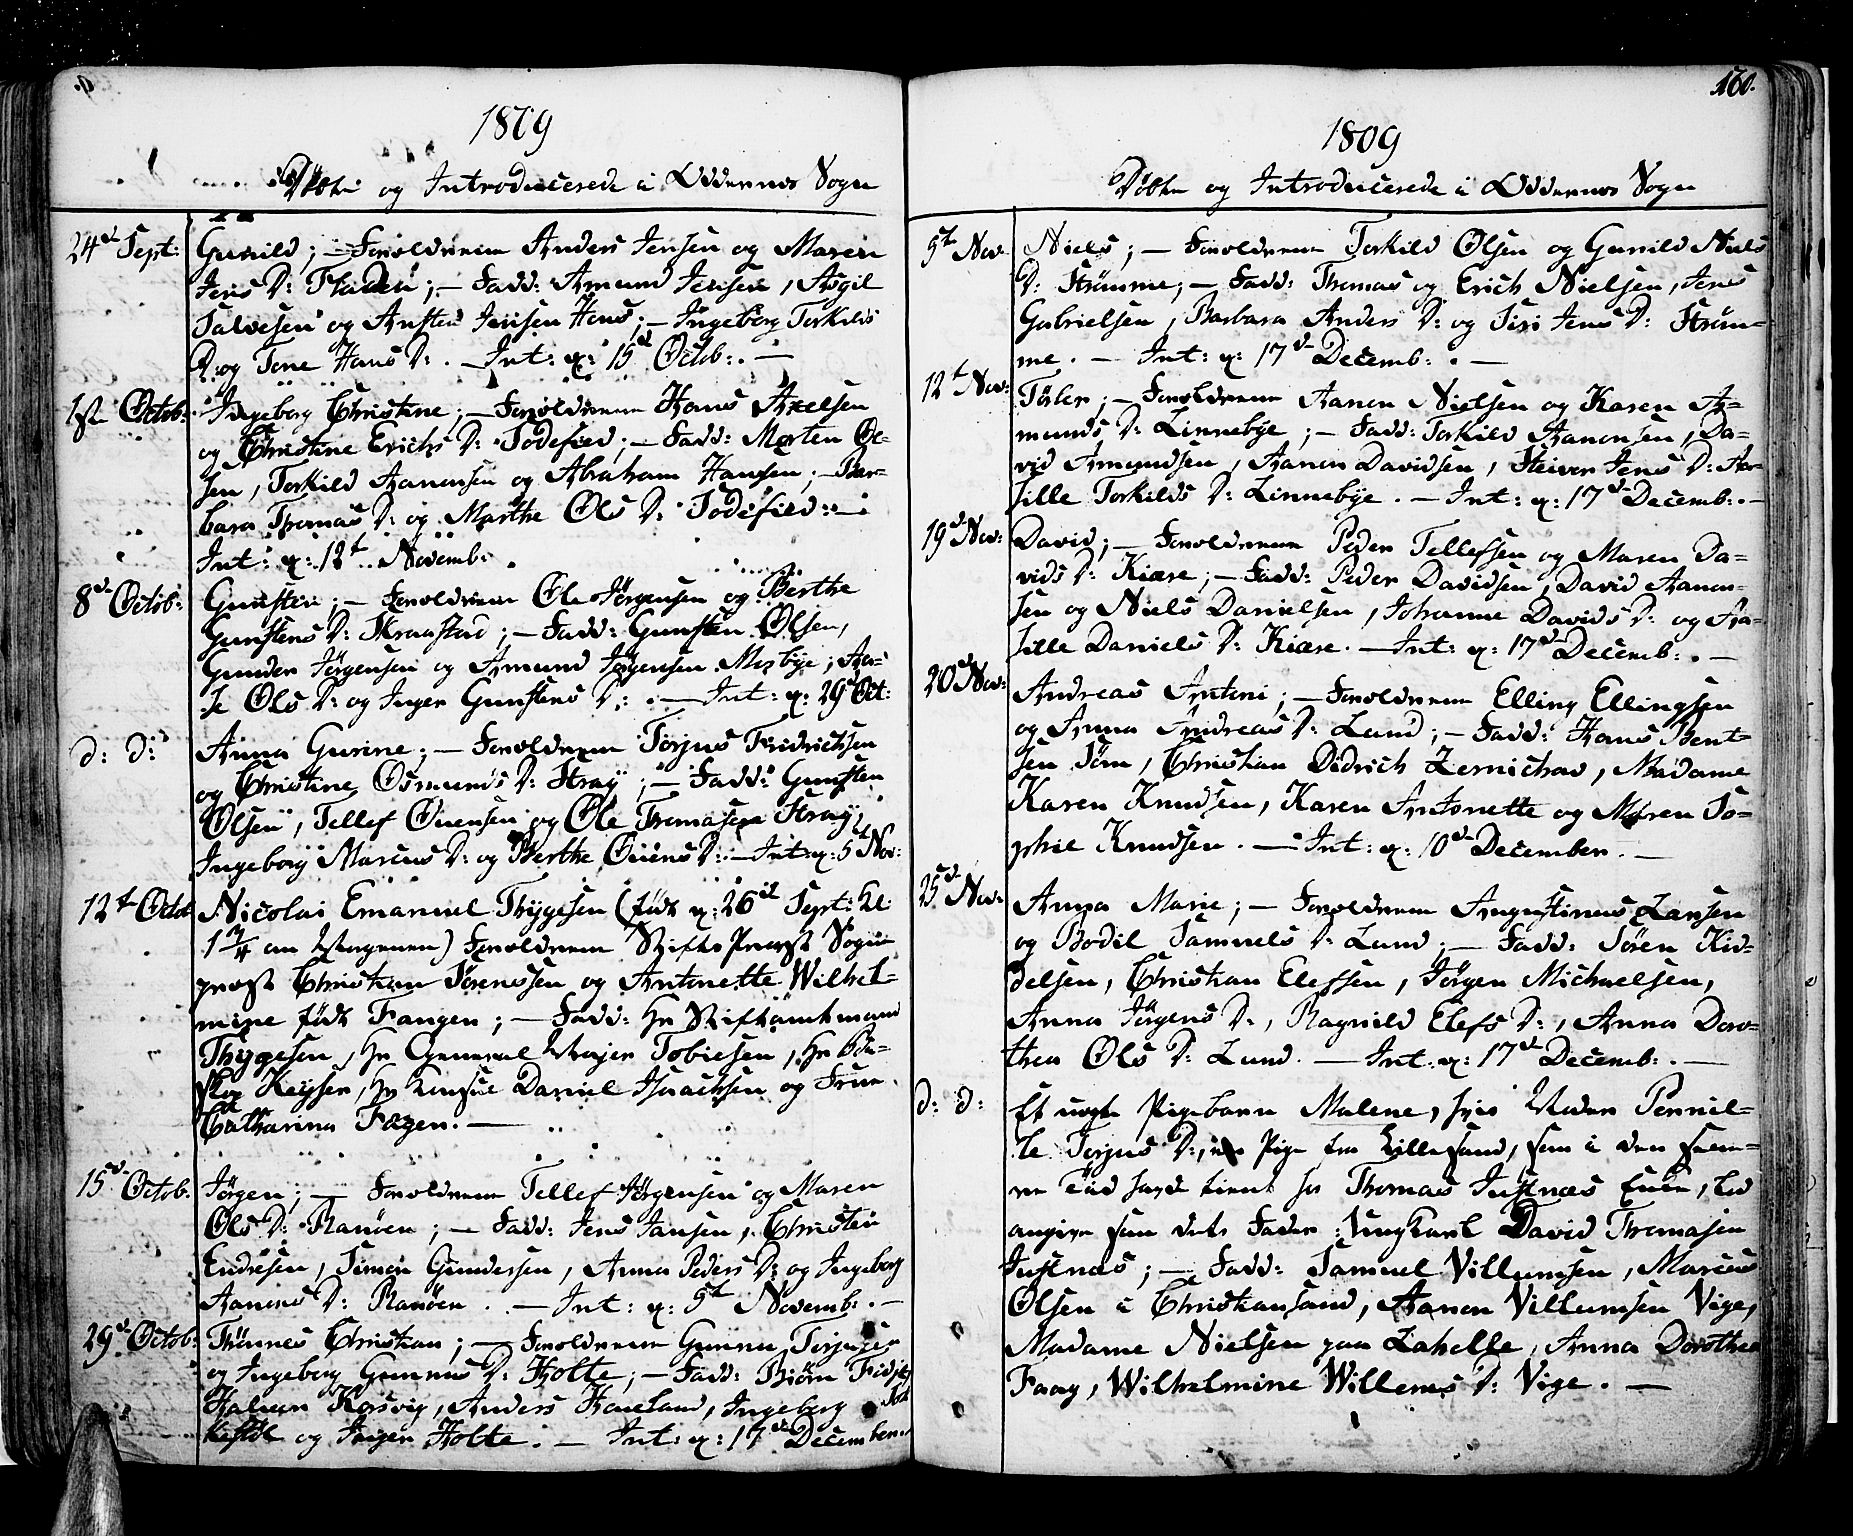 1809
Døbte og Introducerede i Oddernes Sogn
24d Sept: Gunild; – Forældrene Anders Jensen og Maren
Jens D: Fladen; – Fadd: Amund Jensen, Asgil
Salvesen og Ansten Jensen Høns; – Ingeborg Torkilds
D: og Tone Hans D: . – Int: d: 15d Octob: . –
1st Octob: Ingeborg Christine; – Forældrene Hans Axelsen
og Christine Erichs D: Dødefied; – Fadd: Morten Ol-
sen, Torkild Aanonsen og Abraham Hansen; – Bar-
bara Thomas D: og Marthe Ols D: Dødefied: –
Int: d: 12t Novemb: .
8d Octob: Gunsten; – Forældrene Ole Jørgensen og Berthe
Gunstens D: Skraastad; – Fadd: Gunsten Olsen,
Gunder Jørgensen og Amund Jørgensen Mosbye; Aa-
se Ols D: og Inger Gunstens D: . – Int: d: 29d Oct:
d: d: Anna Gurine; – Forældrene Torjus Fridrichsen
og Christine Osmunds D: Straÿ; – Fadd: Gunsten
Olsen, Tellef Øuensen og Ole Thomasen Straÿ;
Ingeborg Marcus D: og Berthe Øuens D: – Int: d: 5t Nov:
12t Octob Nicolai Emanuel Thygesen (født d: 26d Sept: Kl:
1 3/4 om Morgenen) Forældrene Stifts Provst Sogne
præst Christian Sørenssen og Antonette Wilhel-
mine født Fangen; – Fadd: Hr Stiftamtmand
Thygesen, Hr General Major Tobiesen, Hr Bi-
skop Keyser, Hr Konsul Daniel Isaachsen og Frue
Catharina Fagen. –
15d Octob. Jørgen; – Forældrene Tellef Jørgensen og Maren
Ols D: Ranøen; – Fadd: Jens Jansen, Christen
Endresen, Simon Gundersen, Anna Peders D: og Ingeborg
Aanens D: Ranøen . – Int: d: 5t Novemb: . –
29d Octob: Thönnes Christian; – Forældrene Gunnu Torjuse
og Ingeborg Gunnus D: Holte; – Fadd: Biörn Fidje
Halvor Kosvig, Anders Haneland, Ingeborg
og Inger Holte. – Int: d: 17d December.
160.
1809
Døbte og Introducerede i Oddernes Sogn
5t Nov. Niels; – Forældrene Torkild Olsen og Gunild Niels
D: Strømme; – Fadd: Thomas og Erich Nielsen, Jens
Gabrielsen, Barbara Anders D: og Siri Jens D: Strøm-
me. – Int: d: 17d Decemb: . –
12t Nov: Tørler; – Forældrene Aanon Nielsen og Karen A-
munds D: Linnebye; – Fadd: Torkild Aanonsen, Da-
vid Amundsen, Aanon Davidsen, Steiver Jens D: Aa-
sille Torkilds D: Linnebye . – Int: d: 17d Decemb: . –
19d Nov: David; – Forældrene Peder Tellefsen og Maren Da-
vids D: Kiære; – Fadd: Peder Davidsen, David Aanon-
sen og Niels Danielsen, Johanne Davids D: og Aa-
sille Daniels D: Kiære. – Int: d: 17d Decemb: . –
20d Nov: Andreas Antoni; – Forældrene Elling Ellingsen
og Anna Andreas D: Lund; – Fadd: Hans Bent-
sen Töm, Christian Didrich Zernichow, Madame
Karen Knudsen, Karen Antonette og Maren So-
phie Knudsen. – Int: d: 10d December. –
25d Nov: Anna Marie; – Forældrene Augustinus Larsen
og Bodil Samuels D: Lund; – Fadd: Sören Kid-
delsen, Christian Elefsen, Jørgen Michaelsen,
Anna Jörgens D:, Ragnild Elefs D:, Anna Doro-
thea Ols D: Lund. – Int. d: 17d Decemb: . –
d: d: Et uægte Pigebarn Malene, hvis Moder Pernil-
le Torjus D:, en Pige fra Lillesand, som i den sene-
re Tiid havde tient hos Thomas Justnæs Enke, lod
angive som dets Fader: Ungkarl David Thomasen
Justnæs; – Fadd: Samuel Villumsen, Marcus
Olsen i Christiansand, Aanon Villumsen Vige,
Madame Nielsen paa Lahelle, Anna Dorothea
Faaq, Wilhelmine Willems D: Vige. –